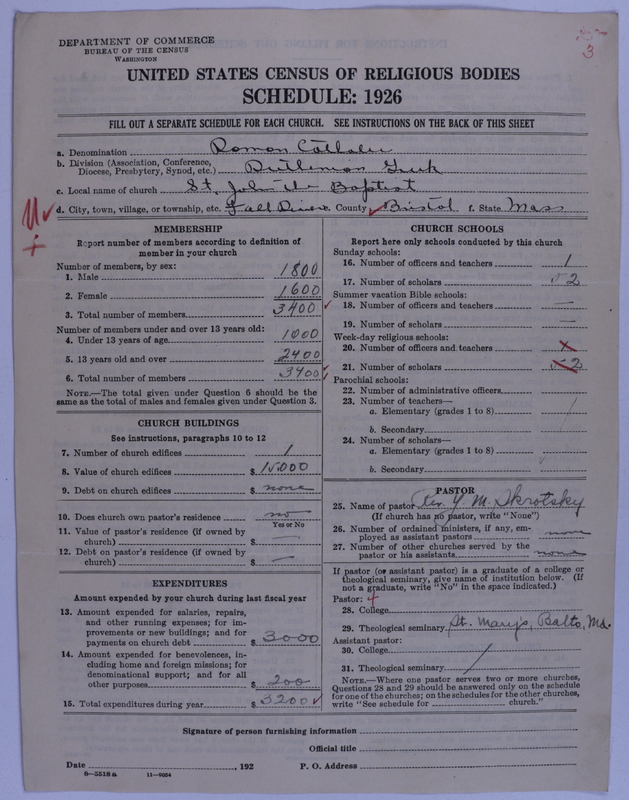 3
DEPARTMENT OF COMMERCE
BUREAU OF THE CENSUS
WASHINGTON
UNITED STATES CENSUS OF RELIGIOUS BODIES
SCHEDULE: 1926
FILL OUT A SEPARATE SCHEDULE FOR EACH CHURCH. SEE INSTRUCTIONS ON THE BACK OF THIS SHEET
a. Denomination Roman Catholic
b. Division (Association, Conference, Diocese, Presbytery, Synod, etc.) Ruthenian Greek
c. Local name of church St. John the Baptist
d. City, town, village, or township, etc. Fall River e. County Bristol f. State Mass
MEMBERSHIP
Report number of members according to definition of
member in your church
Number of members, by sex:
1. Male 1800
2. Female 1600
3. Total number of members 3400
Number of members under and over 13 years old:
4. Under 13 years of age 1000
5. 13 years old and over 2400
6. Total number of members 3400
NOTE.—The total given under Question 6 should be
same as the total of males and females given under Question 3.
CHURCH BUILDINGS
See instructions, paragraphs 10 to 12
7. Number of church edifices 1
8. Value of church edifices $ 15000
9. Debt on church edifices $ none
10. Does church own pastor's residence no
Yes or No
11. Value of pastor's residence (if owned by
church) $ —
12. Debt on pastor's residence (if owned by
church) $ —
EXPENDITURES
Amount expended by your church during last fiscal year
13. Amount expended for salaries, repairs,
and other running expenses; for im-
provements or new buildings; and for
payments on church debt $ 3000
14. Amount expended for benevolences, in-
cluding home and foreign missions; for
denominational support; and for all
other purposes $ 200
15. Total expenditures during year $ 3200
CHURCH SCHOOLS
Report here only schools conducted by this church
Sunday schools:
16. Number of officers and teachers 1
17. Number of scholars 52
Summer vacation Bible schools:
18. Number of officers and teachers —
19. Number of scholars —
Week-day religious schools:
20. Number of officers and teachers
21. Number of scholars 52
Parochial schools:
22. Number of administrative officers
23. Number of teachers—
a. Elementary (grades 1 to 8)
b. Secondary
24. Number of scholars—
a. Elementary (grades 1 to 8)
b. Secondary
PASTOR
25. Name of pastor Rev. Y M. Skrotsky
(If church has no pastor, write "None")
26. Number of ordained ministers, if any, em-
ployed as assistant pastors none
27. Number of other churches served by the
pastor or his assistants none
If pastor (or assistant pastor) is a graduate of a college or
theological seminary, give name of institution below. (If
not a graduate, write "No" in the space indicated.)
Pastor:
28. College
29. Theological seminary St. Mary's, Balto, Md.
Assistant pastor:
30. College
31. Theological seminary
NOTE.—Where one pastor serves two or more churches,
Questions 28 and 29 should be answered only on the schedule
for one of the churches; on the schedules for the other churches,
write "See schedule for church."
Signature of person furnishing information
Official title
Date , 192 P. O. Address
8—5518 a 11—9054